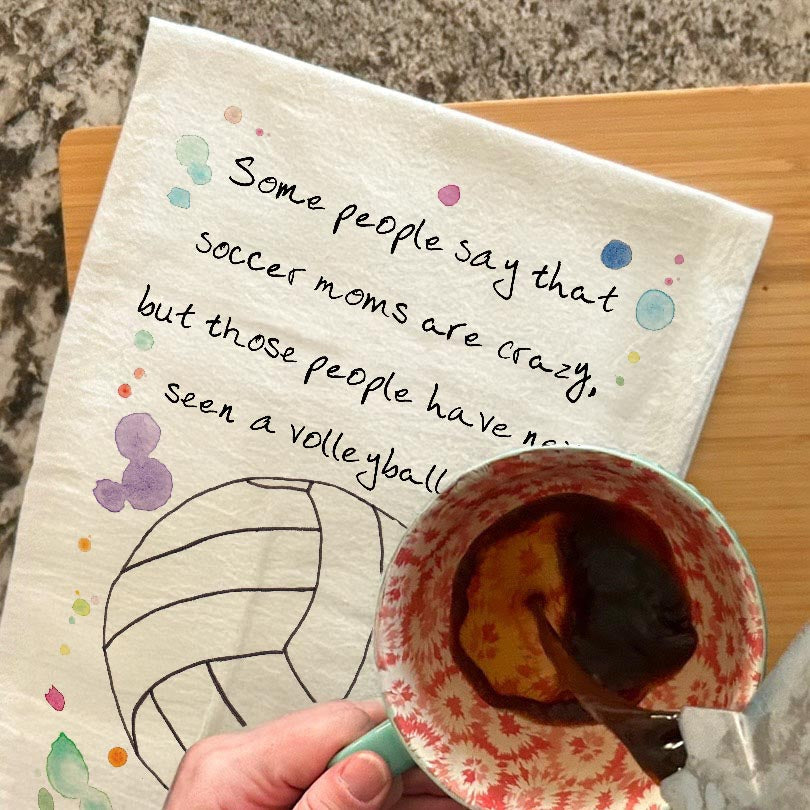 Some people say that
soccer moms are crazy,
but those people have
seen a volleyball